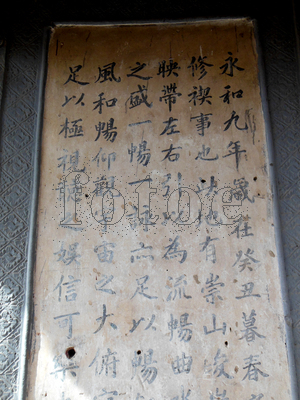 永和九年歲在癸丑暮春
修禊事也此地有崇山峻
映帶左右引以為流暢曲
之盛一暢一詠亦足以暢
風和暢仰觀宇宙之大俯
足以極視聽之娛信可樂
fotoe